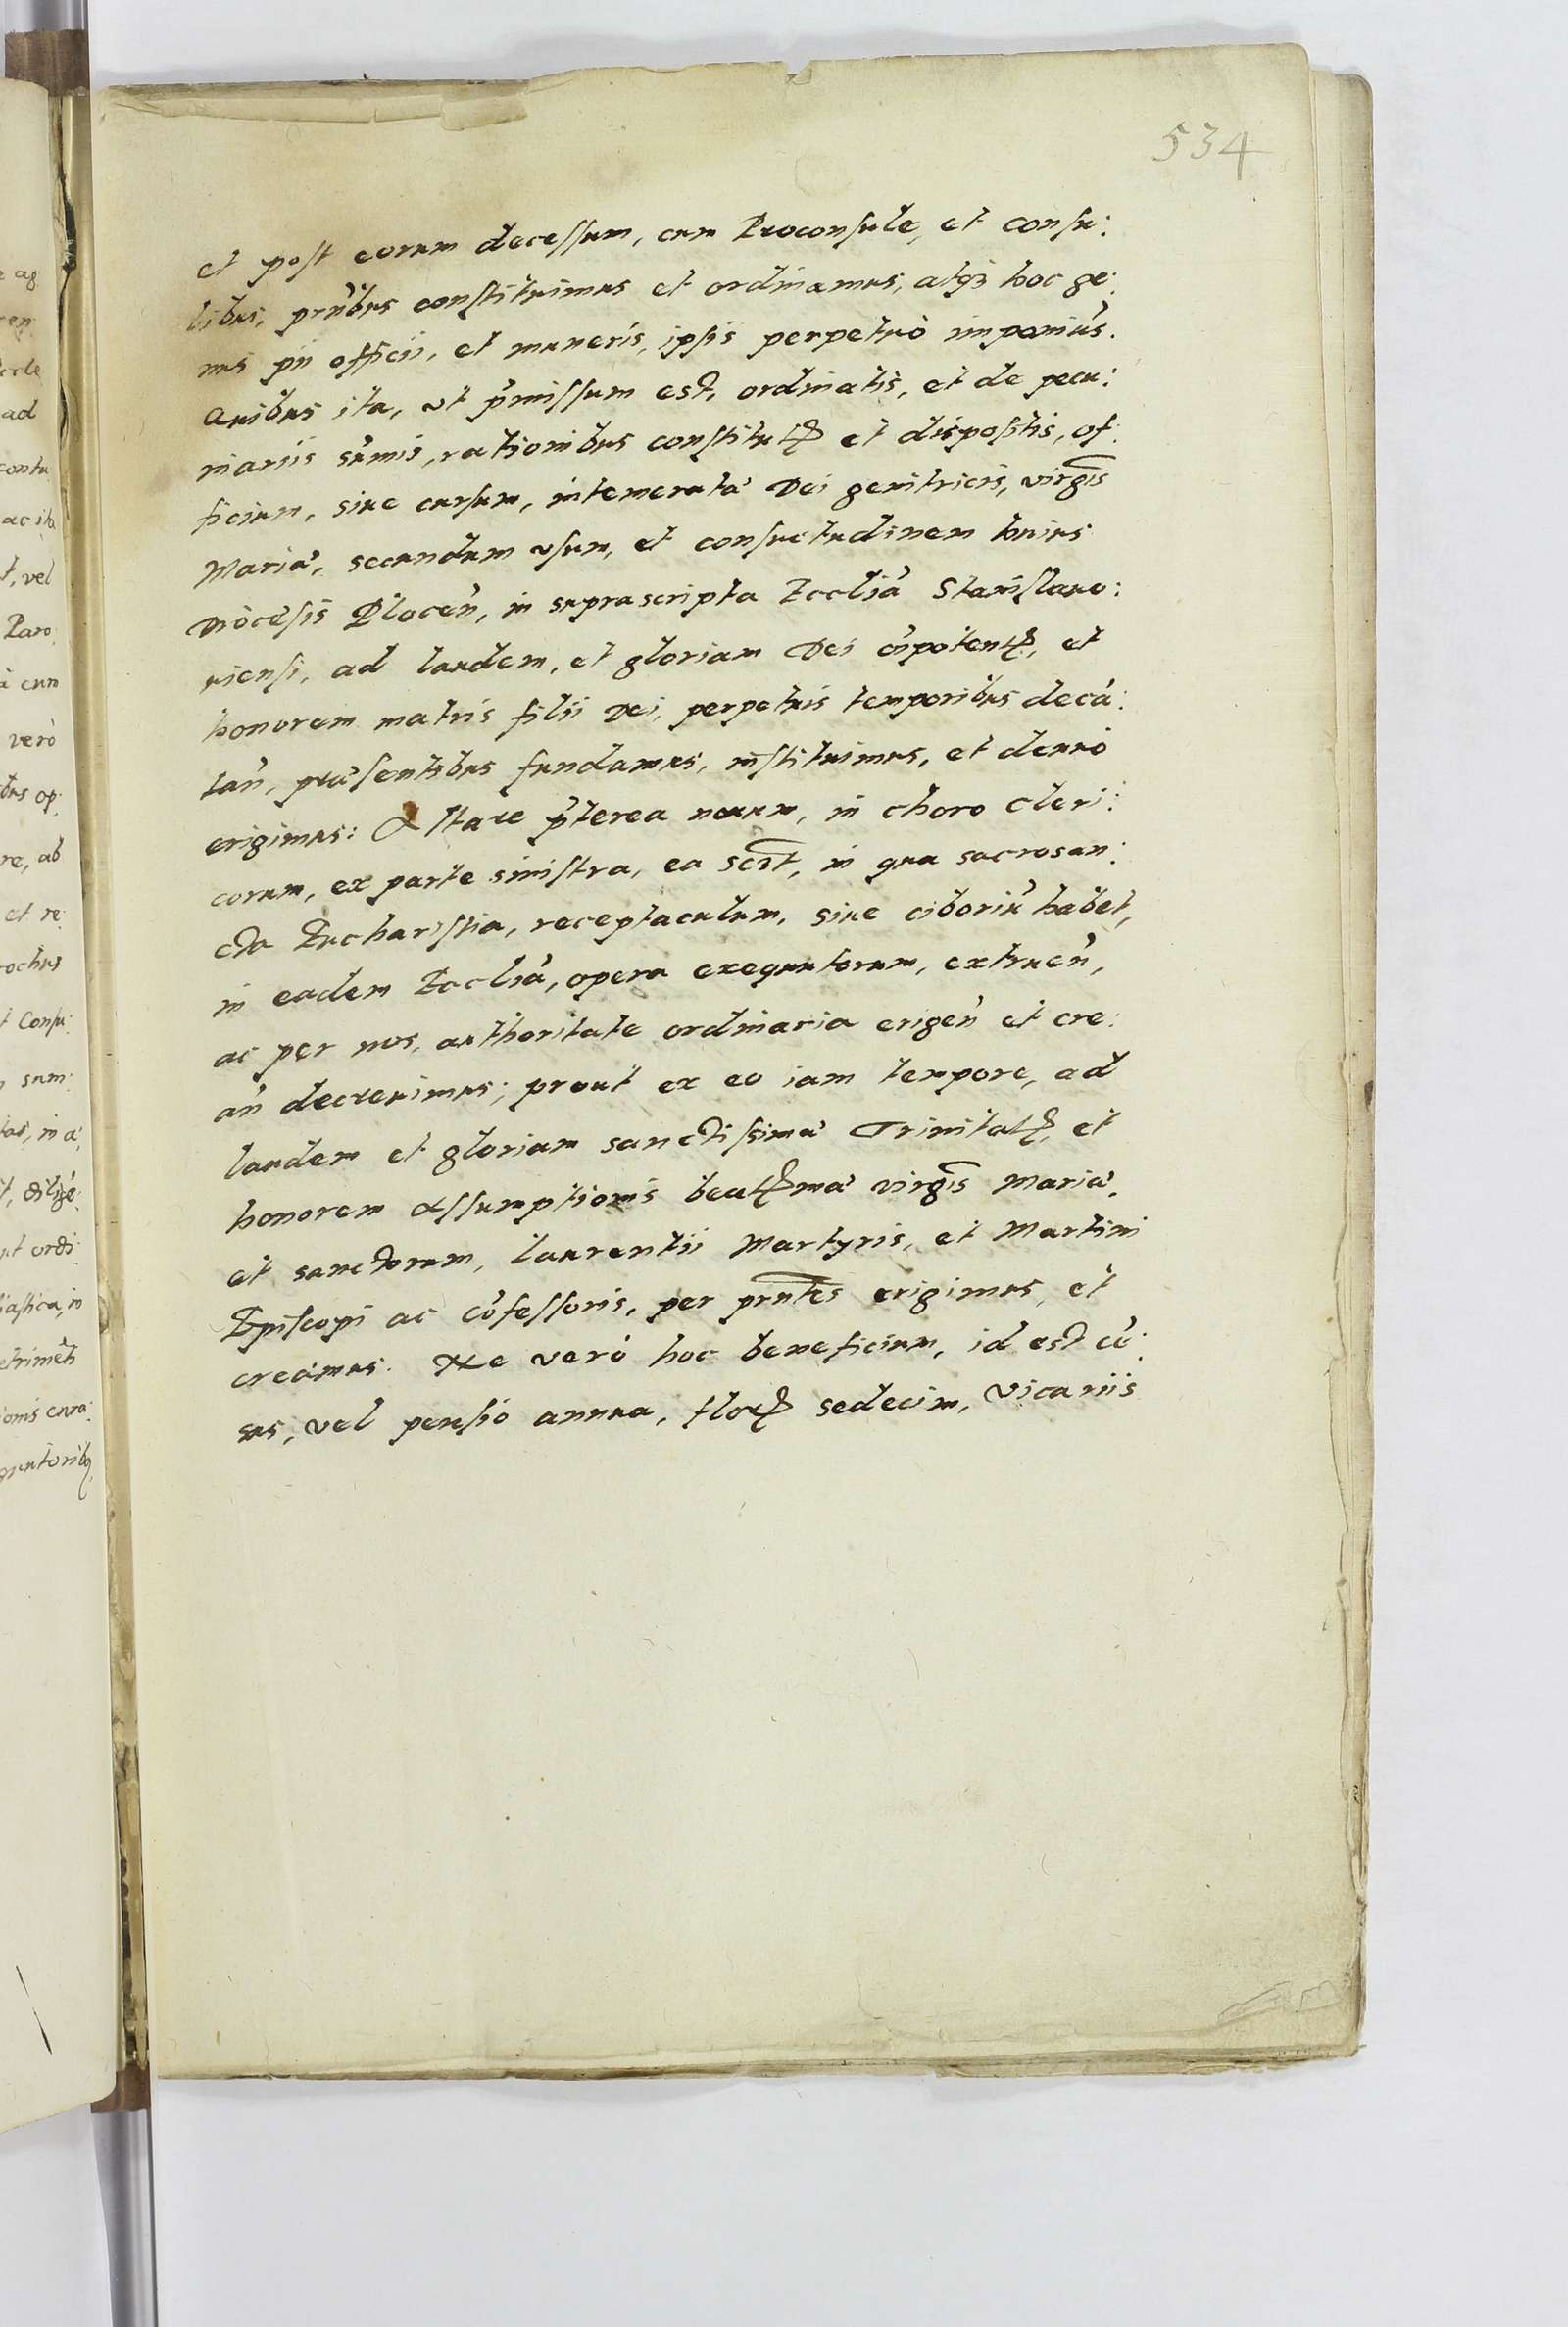 534
et post eorum decessum, cum Proconsule, et Consu:
libus, prn̄bus constituimus et ordinamus, atq3 hoc ge:
nus pii officii, et muneris, ipsis perpetuò imponim̃s.
Quibus ita, vt p̃missum est, ordinatis, et de pecu:
niariis sũmis, rationibus constitutꝭ et dispositis, of:
ficium, siue cursum, intemerata' Dei genitricis, virgīs
Maria', secundum vsum, et consuetudinem huius
Diocesis Plocen̄, in suprascripta Eccliã Stanislauo:
uiensi, ad laudem, et gloriam Dei õipotentꝭ, et
honorem matris filii Dei, perpetuis temporibus decã:
tan̄, præsentibus fundamus, instituimus, et denuò
erigimus: Altare p̃terea nouum, in choro Cleri:
corum, ex parte sinistra, ea scīt, in qua sacrosan:
cta Eucharistia, receptaculum, siue ciboriũ habet,
in eadem Eccliã, opera exequutorum, extruen̄,
ac per nos, authoritate ordinaria erigen̄ et cre:
an̄ decreuimus; prout ex eo iam tempore, ad
laudem et gloriam sanctissima' Trinitatꝭ, et
honorem Assumptionis beatꝭma' virgīs Maria',
et sanctorum, Laurentii Martyris, et Martini
Episcopi ac Cõfessoris, per prn̄tes erigimus, et
creamus. Ne verò hoc beneficium, id est cẽ:
sus, vel pensio annua, florꝭ sedecim, Vicariis
e ag
ad
contu
ac ita
t, vel
Paro:
à cum
verò
bus op:
re, ab
et re:
rochus
t Consu:
sum:
tas, in a:
t, diligẽ:
ut ordi:
iastica, in
etrimēti
ionis cura:
quutorib9,